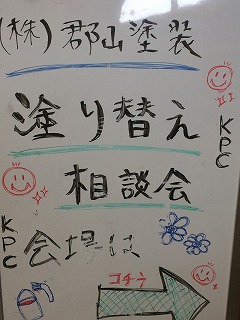 (株)郡山塗装
塗り替え
KPC
相談会
KPC
会場は
コチラ